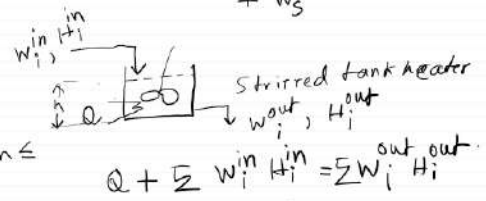 + Ws
Wiⁱⁿ, Hiⁱⁿ
Stirred tank heater
h
Q
Wiᵒᵘᵗ, Hiᵒᵘᵗ
n ≤
Q + Σ Wiⁱⁿ Hiⁱⁿ = Σ Wiᵒᵘᵗ Hiᵒᵘᵗ.